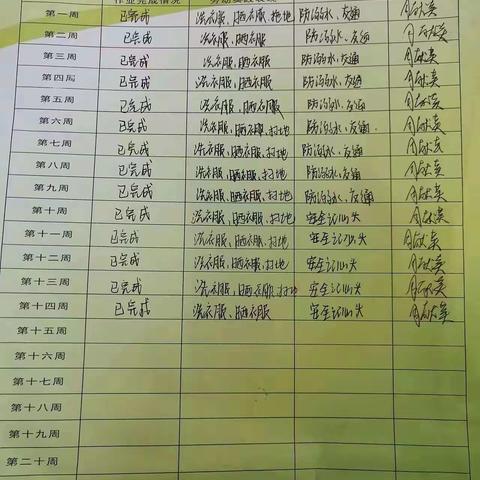 作业完成情况
第一周 已完成 洗衣服、晒衣服、扫地 防溺水、交通
第二周 已完成 洗衣服、晒衣服 防溺水、交通
第三周 已完成 洗衣服、晒衣服 防溺水、交通
第四周 已完成 洗衣服、晒衣服 防溺水、交通
第五周 已完成 洗衣服、晒衣服 防溺水、交通
第六周 已完成 洗衣服、晒衣服、扫地 防溺水、交通
第七周 已完成 洗衣服、晒衣服、扫地 防溺水、交通
第八周 已完成 洗衣服、晒衣服、扫地 防溺水、交通
第九周 已完成 洗衣服、晒衣服、扫地 防溺水、交通
第十周 已完成 洗衣服、晒衣服、扫地 安全记心头
第十一周 已完成 洗衣服、晒衣服、扫地 安全记心头
第十二周 已完成 洗衣服、晒衣服、扫地 安全记心头
第十三周 已完成 洗衣服、晒衣服、扫地 安全记心头
第十四周 已完成 洗衣服、晒衣服 安全记心头
第十五周
第十六周
第十七周
第十八周
第十九周
第二十周